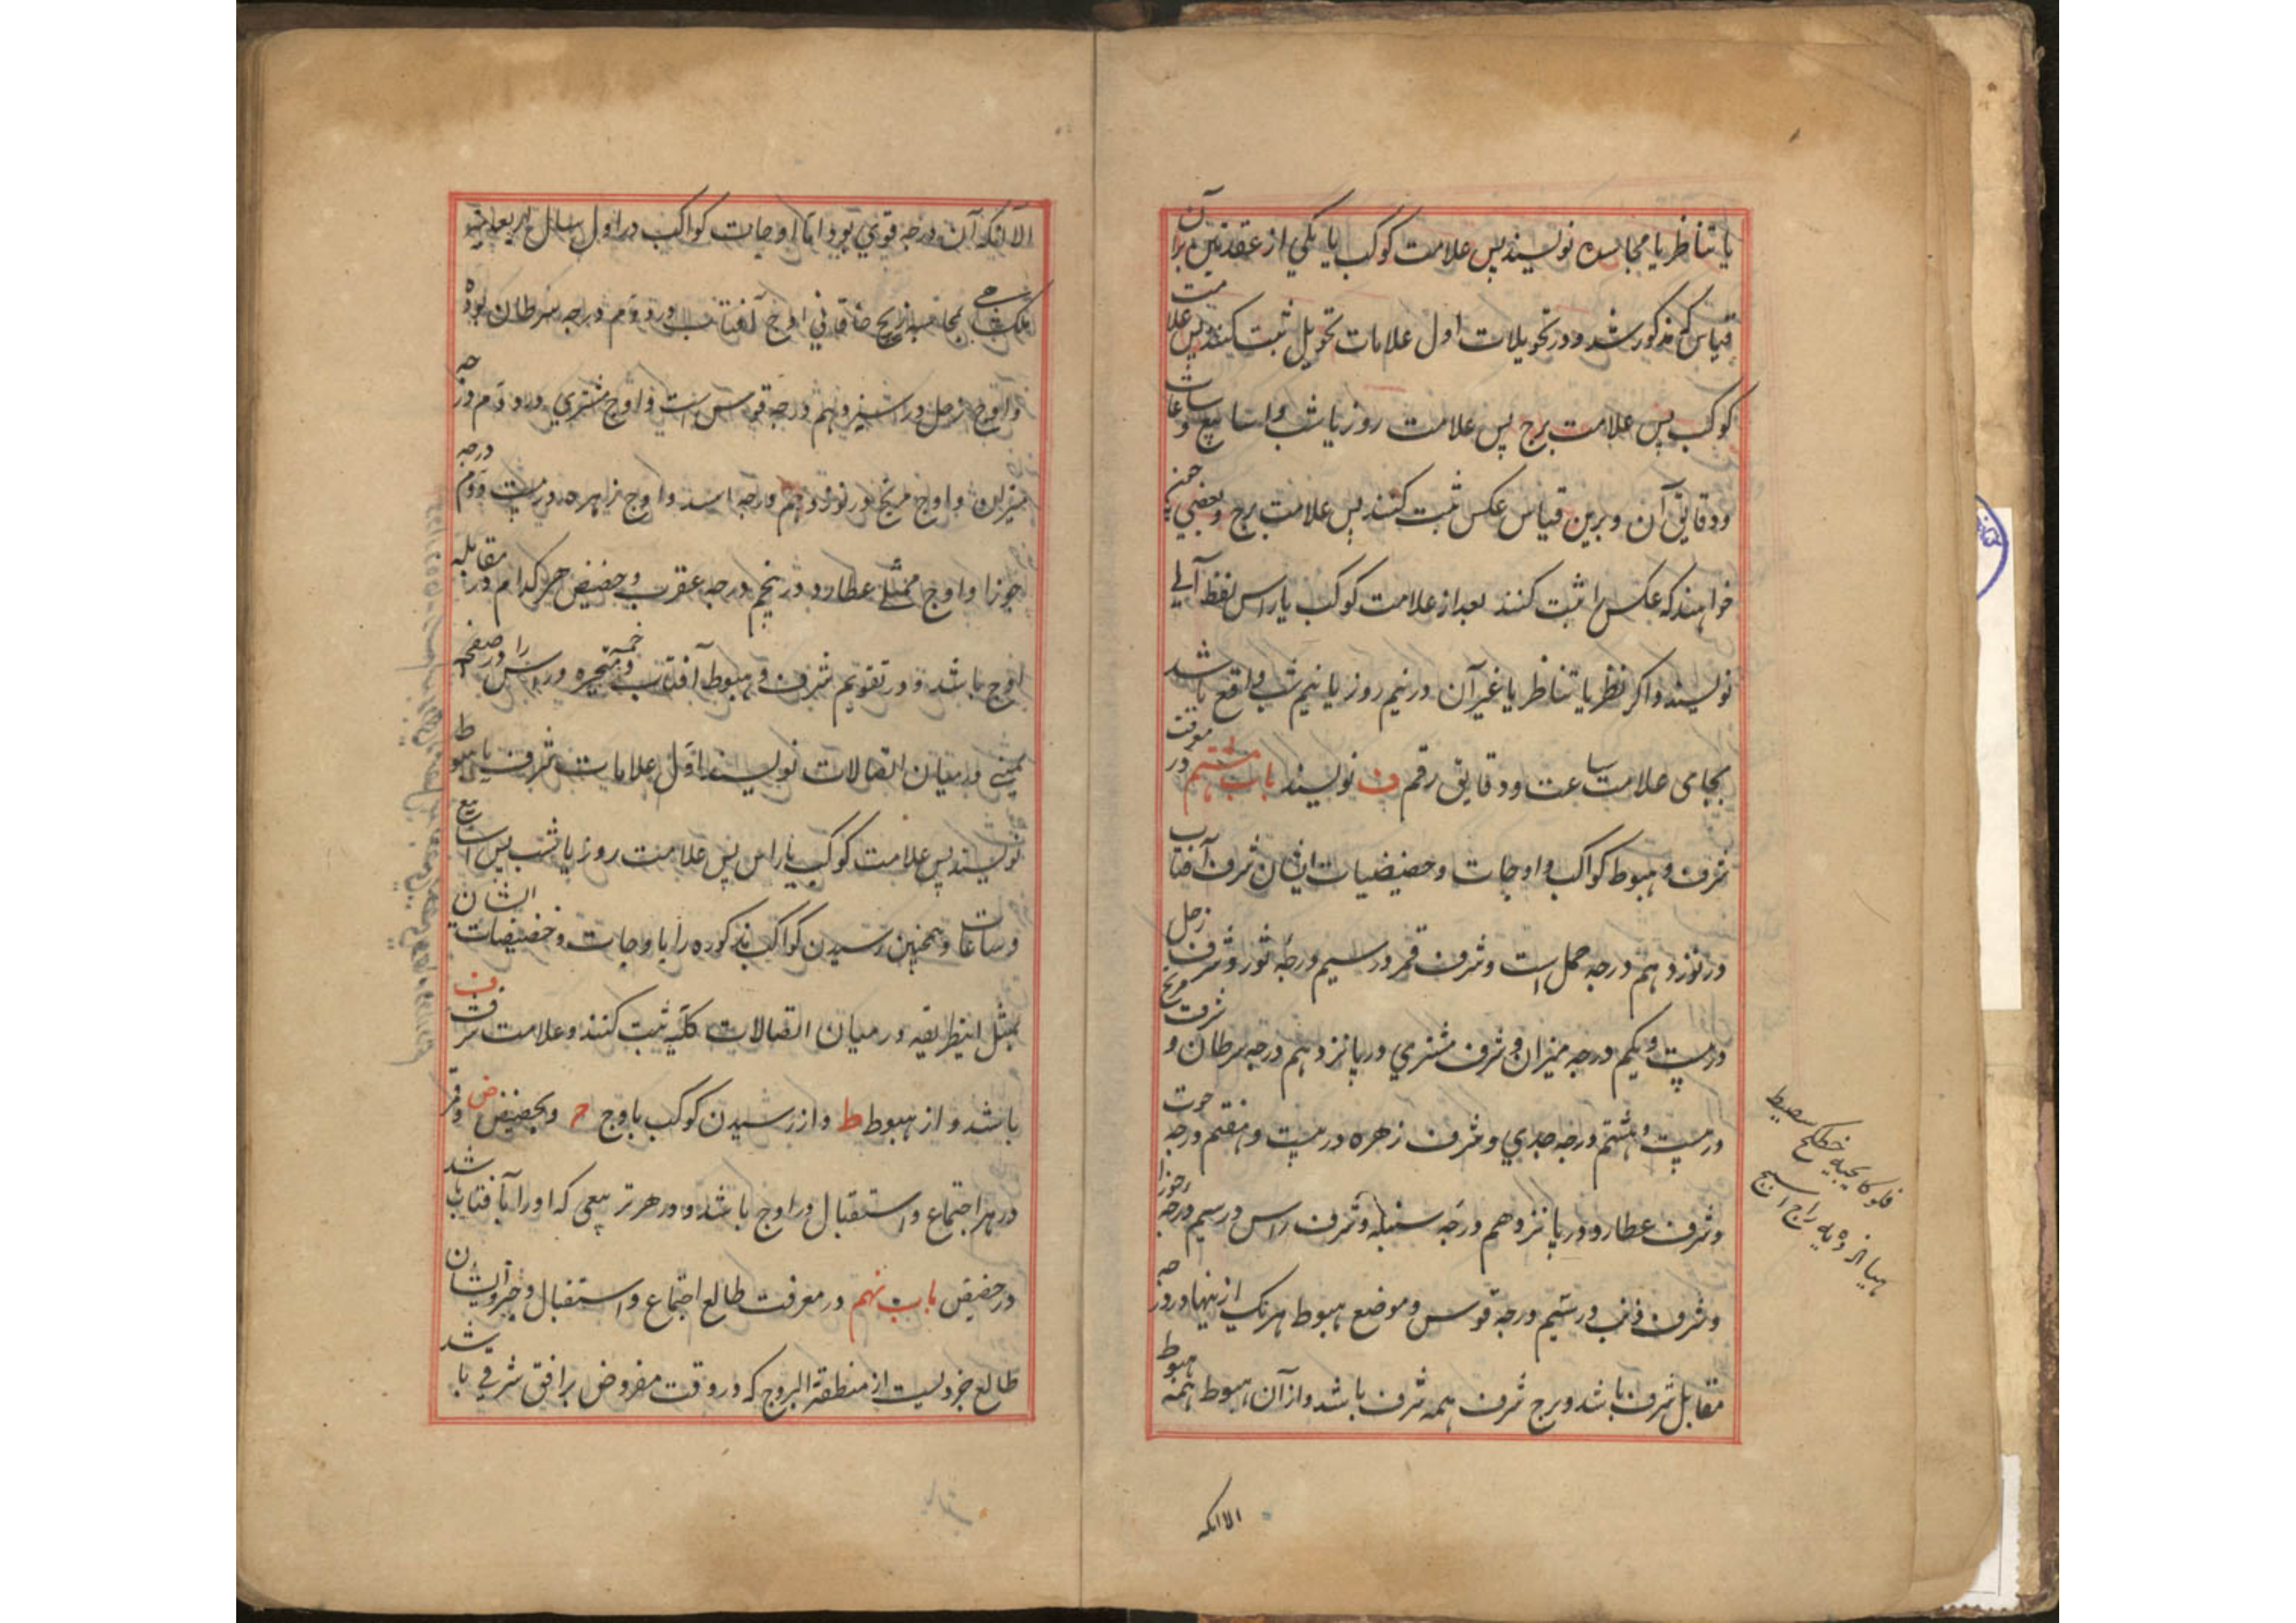 یا تناظر یا مجاسده نویسند پس علامت کوکب یا یکی از عقدتین برآن
قیاس که مذکور شد و در تحویلات اول علامات تحویل ثبت کنند پس علامت
کوکب پس علامت برج پس علامت روز یا شب و اسابیع و ساعات
و دقایق آن و برین قیاس عکس ثبت کنند پس علامت برج و بعضی چون
خواهند که عکس را ثبت کنند بعد از علامت کوکب یا راس لفظ آلی
نویسند و اکر نظر یا تناظر یا غیر آن در نیم روز یا نیم شب واقع باشد
بجای علامت ساعت و دقایق رقم ف نویسند باب هشتم در معرفت
شرف و هبوط کواکب و اوجات و حضیضات ایشان شرف آفتاب
در نوزدهم درجه حمل است و شرف قمر در سیم درجه ثور و شرف زحل
در بیست و یکم درجه میزان و شرف مشتری در پانزدهم درجه سرطان و شرف مریخ
در بیست و هشتم درجه جدی و شرف زهره در بیست و هفتم درجه حوت
و شرف عطارد در پانزدهم درجه سنبله و شرف راس در سیم درجه جوزا
و شرف ذنب در سیم درجه قوس و موضع هبوط هر یک ازینها در درجه
مقابل شرف باشد و برج شرف همه شرف باشد و از آن هبوط همه هبوط
الا انکه
الا انکه آن درجه قوی بود اما اوجات کواکب در اول سال
ملکشاهی بحساب زیج خاقانی اوج آفتاب در دوم درجه سرطان بوده
و اوج زحل در سیزدهم درجه قوس است و اوج مشتری در دوم درجه
میزان و اوج مریخ در نوزدهم درجه اسد و اوج زهره در بیست و دوم درجه
جوزا و اوج ممثل عطارد در پنجم درجه عقرب و حضیض هر کدام در مقابله
اوج باشد و در تقویم شرف و هبوط آفتاب و خمسه متحیره و راس را در صفحه
یمینی در میان اتصالات نویسند اول علامات شرف یا هبوط
نویسند پس علامت کوکب یا راس پس علامت روز یا شب پس اسابیع
و ساعات و همچنین رسیدن کواکب مذکوره را باوجات و حضیضات ایشان
بمثل اینطریقه در میان اتصالات کلیه ثبت کنند و علامت شرف ف
باشد و از هبوط ط و از رسیدن کوکب باوج ج و بحضیض ض و قمر
در هر اجتماع و استقبال در اوج باشد و در هر تربیعی که او را با آفتاب باشد
در حضیض باب نهم در معرفت طالع اجتماع و استقبال و جزو ایشان
طالع جزویست از منطقة البروج که در وقت مفروض بر افق شرقی باشد